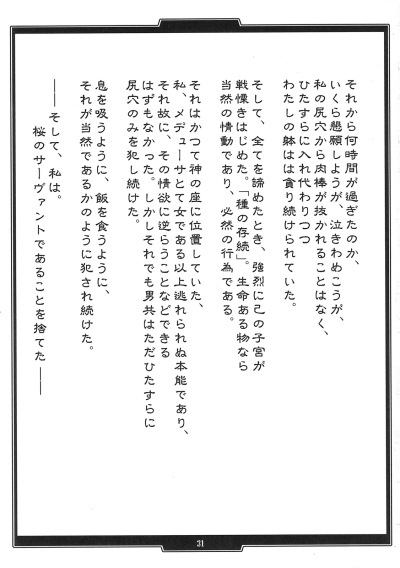 それから何時間が過ぎたのか、
いくら懇願しようが、泣きわめこうが、
私の尻穴から肉棒が抜かれることはなく、
ひたすらに入れ代わりつつ
わたしの躰はは貪り続けられていた。
そして、全てを諦めたとき、強烈に己の子宮が
戦慄きはじめた。「種の存続」。生命ある物なら
当然の情動であり、必然の行為である。
それはかつて神の座に位置していた、
私、メデューサとて女である以上逃れられぬ本能であり、
それ故に、その情欲に逆らうことなどできる
はずもなかった。しかしそれでも男共はただひたすらに
尻穴のみを犯し続けた。
息を吸うように、飯を食うように、
それが当然であるかのように犯され続けた。
―― そして、私は。
桜のサーヴァントであることを捨てた ――
31